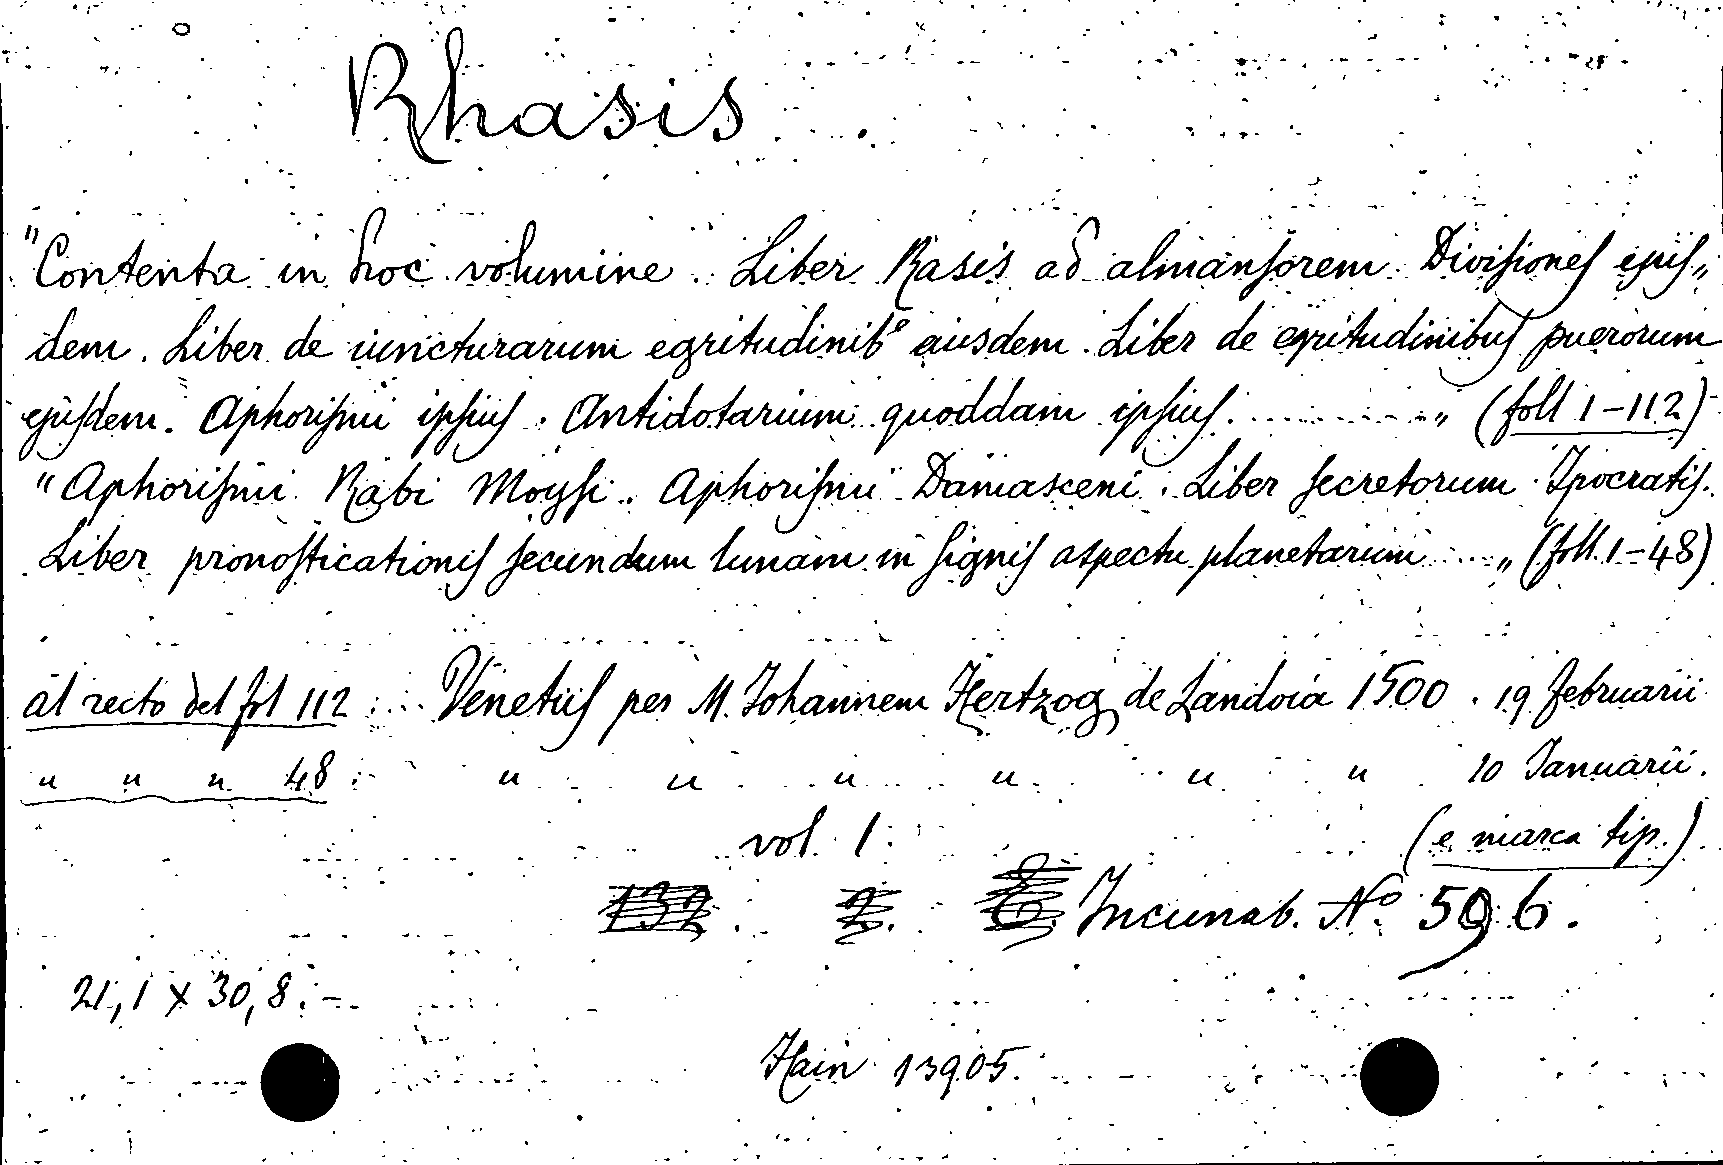 Rhasis
"Contenta in hoc volumine. Liber Rasis ad almansorem. Divisiones ejus„
dem. Liber de iuncturarum egritudinib° eiusdem. Liber de egritudinibus puerorum
ejusdem. Aphorismi ipsius. Antidotarium quoddam ipsius. ........... „ (foll 1-112)
"Aphorismi Rabi Moysi. Aphorismi Damasceni. Liber secretorum Ipocratis.
Liber pronosticationis secundum lunam in signis aspectu planetarum .... „ (foll. 1-48)
al recto del fol 112: ... Venetiis per M. Johannem Hertzog de Landoia 1500. 19 februarii
" " " 48: " " " " " " 10 Januarii.
vol. 1. (e marca tip.)
Incunab. N° 596.
21,1 x 30,8.-
Hain 13905.